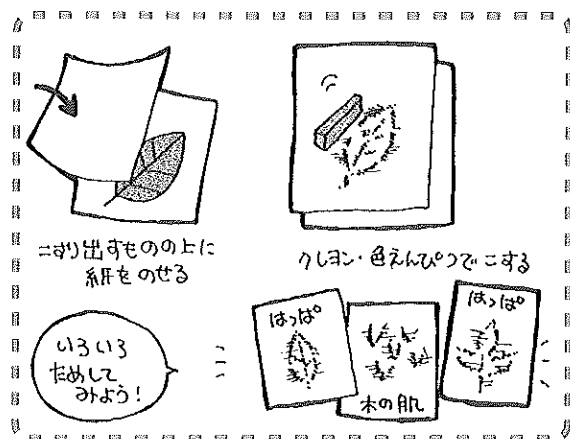 こすり出すものの上に
紙をのせる
クレヨン・色えんぴつでこする
いろいろ
ためして
みよう!
はっぱ
木の肌
はっぱ